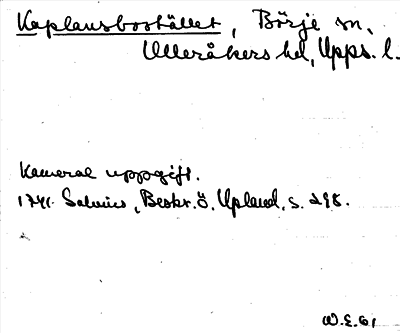 Kaplansbostället, Börje sn,
Ulleråkers hd, Upps. l.
Kameral uppgift.
1741. Salvius, Beskr. ö. Upland, s. 298.
W.E. 61